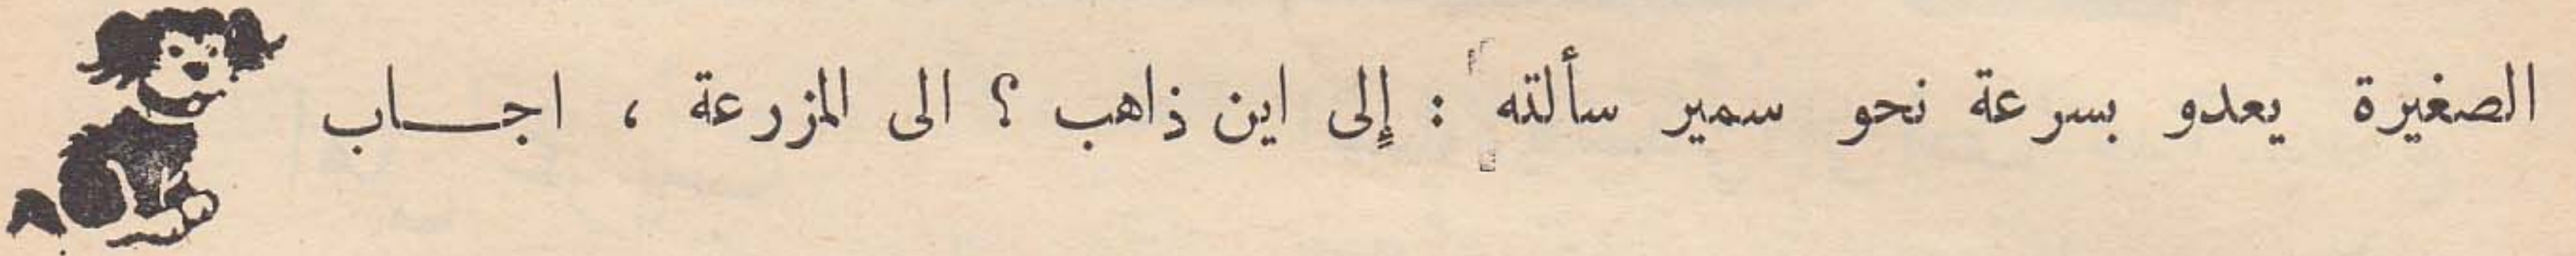 الصغيرة يعدو بسرعة نحو سمير سألته : إلى اين ذاهب ؟ الى المزرعة ، اجــاب